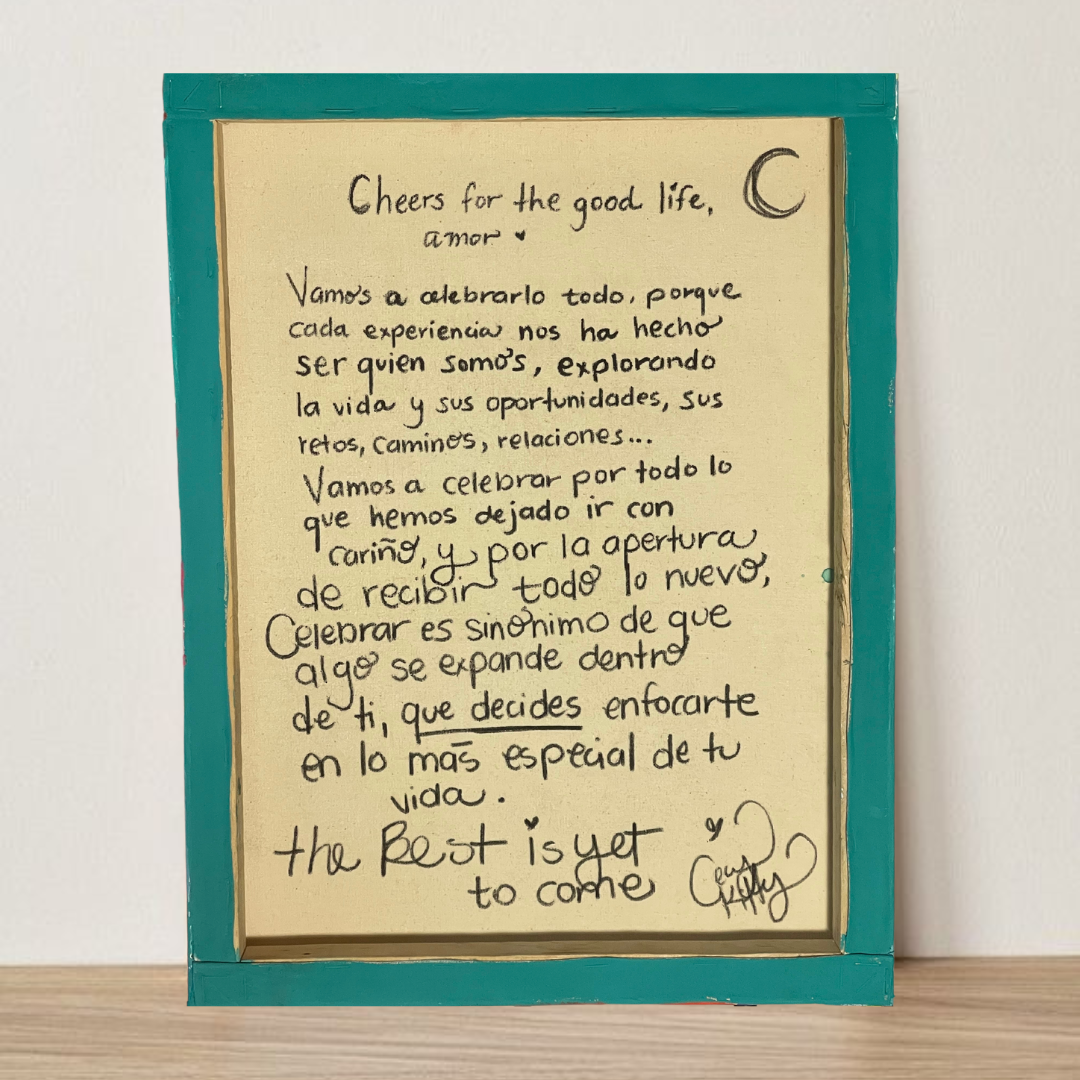 Cheers for the good life,
amor
Vamos a celebrarlo todo, porque
cada experiencia nos ha hecho
ser quien somos, explorando
la vida y sus oportunidades, sus
retos, caminos, relaciones...
Vamos a celebrar por todo lo
que hemos dejado ir con
cariño, y por la apertura
de recibir todo lo nuevo,
Celebrar es sinónimo de que
algo se expande dentro
de ti, que decides enfocarte
en lo más especial de tu
vida.
the Best is yet
to come